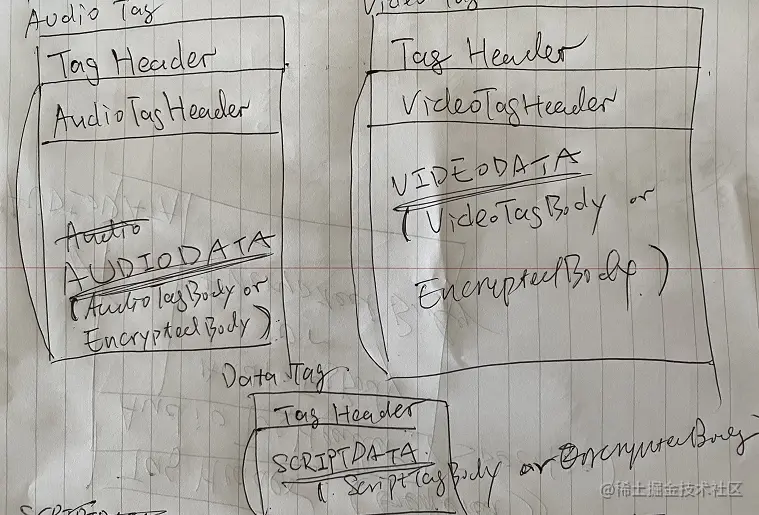 Audio Tag
Tag Header
AudioTagHeader
Audio
AUDIODATA
(AudioTagBody or
EncryptedBody)
Video Tag
Tag Header
VideoTagHeader
VIDEODATA
(VideoTagBody or
EncryptedBody)
Data Tag
Tag Header
SCRIPTDATA
(ScriptTagBody or EncryptedBody
@稀土掘金技术社区